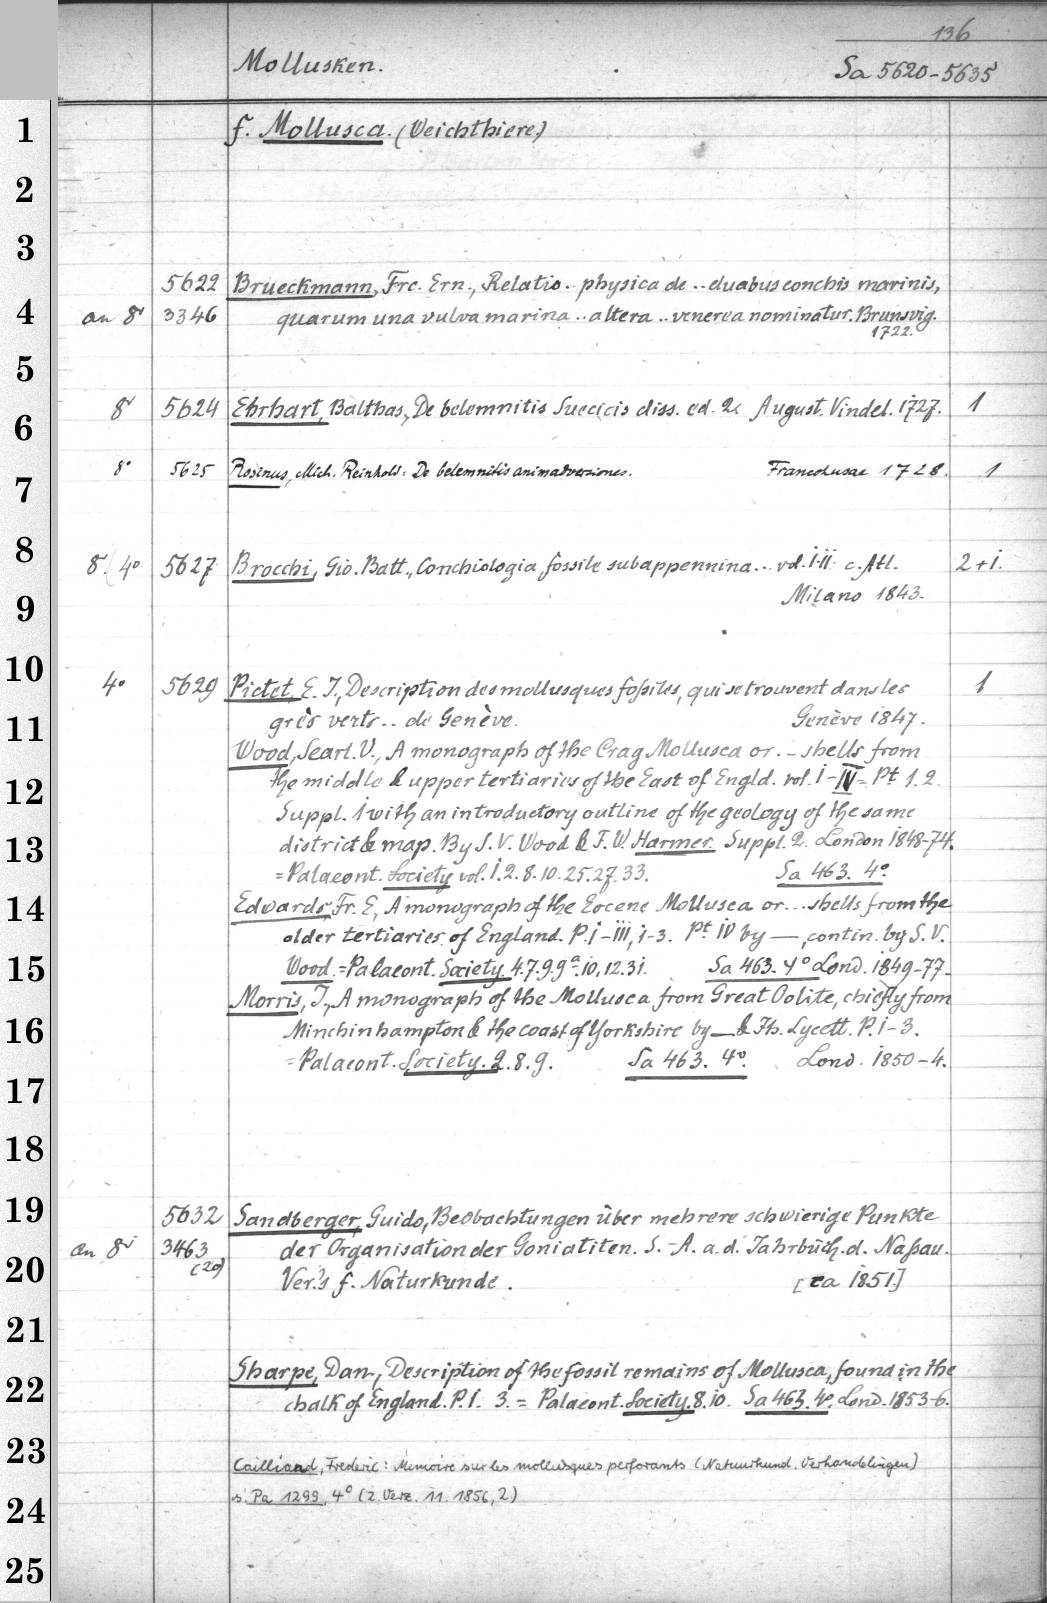 136
Mollusken. Sa 5620-5635
1 f. Mollusca. (Weichthiere)
2
3
5622 Brueckmann, Frc. Ern., Relatio.. physica de .. duabus conchis marinis,
4 an 8° 3346 quarum una vulva marina .. altera .. venerea nominatur. Brunsvig.
1722.
5
8° 5624 Ehrhart, Balthas., De belemnitis Suecicis diss. ed. 2. August. Vindel. 1727. 1
6
8° 5625 Rosinus, Mich. Reinhold: De belemnitis animadversiones. 1728. 1
7
8
8° 4° 5627 Brocchi, Gio. Batt., Conchiologia fossile subappennina... vol. I-II c. Atl. 2+1.
9 Milano 1843.
10
4° 5629 Pictet, E. J., Description des mollusques foßiles, qui se trouvent dans les 1
11 grès verts .. de Genève. Genève 1847.
Wood, Searl. V., A monograph of the Crag Mollusca or .- shells from
12 the middle & upper tertiaries of the East of Engld. vol. I-IV= Pt 1.2.
Suppl. 1 with an introductory outline of the geology of the same
13 district & map. By S. V. Wood & F. W. Harmer. Suppl. 2. London 1848-74.
=Palaeont. Society vol. 1.2.8.10.25.27.33. Sa 463. 4°.
14 Edwards, Fr. E., A monograph of the Eocene Mollusca or... shells from the
older tertiaries of England. P. I-III, 1-3. Pt IV by —, contin. by S. V.
15 Wood.=Palaeont. Society. 4.7.9.9a.10.12.31. Sa 463. 4° Lond. 1849-77.
Morris, J., A monograph of the Mollusca from Great Oolite, chiefly from
16 Minchinhampton & the coast of Yorkshire by — & Th. Lycett. P. 1-3.
=Palaeont. Society. 2.8.9. Sa 463. 4°. Lond. 1850-4.
17
18
19 5632 Sandberger, Guido, Beobachtungen über mehrere schwierige Punkte
an 8° 3463 der Organisation der Goniatiten. S.-A. a. d. Jahrbüch. d. Naßau.
20 (20) Ver.'s f. Naturkunde. [ca 1851]
21
Sharpe, Dan., Description of the fossil remains of Mollusca, found in the
22 chalk of England. P. 1. 3. = Palaeont. Society. 8.10. Sa 463. 4°. Lond. 1853-6.
23
Cailliaud, Frederic: Memoire sur les mollusques perforants (Natuurkund. Verhandelingen)
24 s. Pa 1299, 4° (2. Verz. 11. 1856, 2)
25